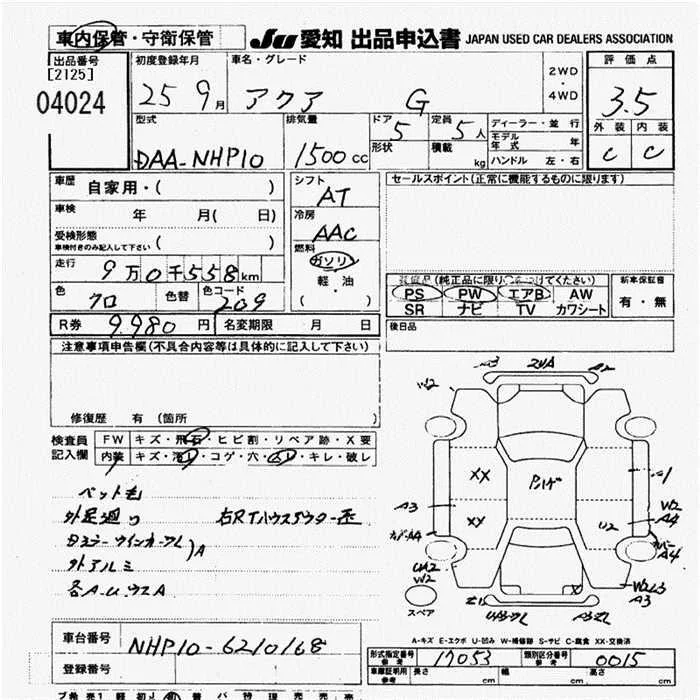 車内保管・守衛保管
JU 愛知 出品申込書 JAPAN USED CAR DEALERS ASSOCIATION
出品番号
[2125]
04024
初度登録年月
25 9月
車名・グレード
アクア G
2WD
・
4WD
評価点
3.5
外装 内装
C C
型式
DAA-NHP10
排気量
1500cc
ドア 5
形状
定員 5人
積載 kg
ディーラー・並行
モデル年式 年
ハンドル 左・右
車歴 自家用・( )
車検 年 月( 日)
受検形態
車検付きのみ記入して下さい ( )
走行 9万0千558km
色 クロ 色替 色コード 209
シフト AT
冷房 AAC
燃料
ガソリン
軽・油
( ・ )
R券 9.980円 名変期限 月 日
セールスポイント(正常に機能するものに限ります)
装備品(純正品に限り○をつけてください)
PS PW エアB AW
SR ナビ TV カワシート
新車保証書
有・無
後日品
注意事項申告欄(不具合内容等は具体的に記入して下さい)
修復歴 有(箇所
検査員記入欄
FW キズ・飛石・ヒビ割・リペア跡・X要
内装 キズ・汚レ・コゲ・穴・スレ・キレ・破レ
ペット毛
外足廻り
外アルミ
A3 2UA A2
W2
XX
XX
A3
A1
W2
A4
U2
カバーAA
W2
A4
A3
スペア
A-キズ E-エクボ U-凹み W-補修跡 S-サビ C-腐食 XX-交換済
車台番号 NHP10-6210168
登録番号
形式指定番号 参考 17053
類別区分番号 参考 0015
車庫証明用 参考 長さ cm 幅 cm 高さ cm